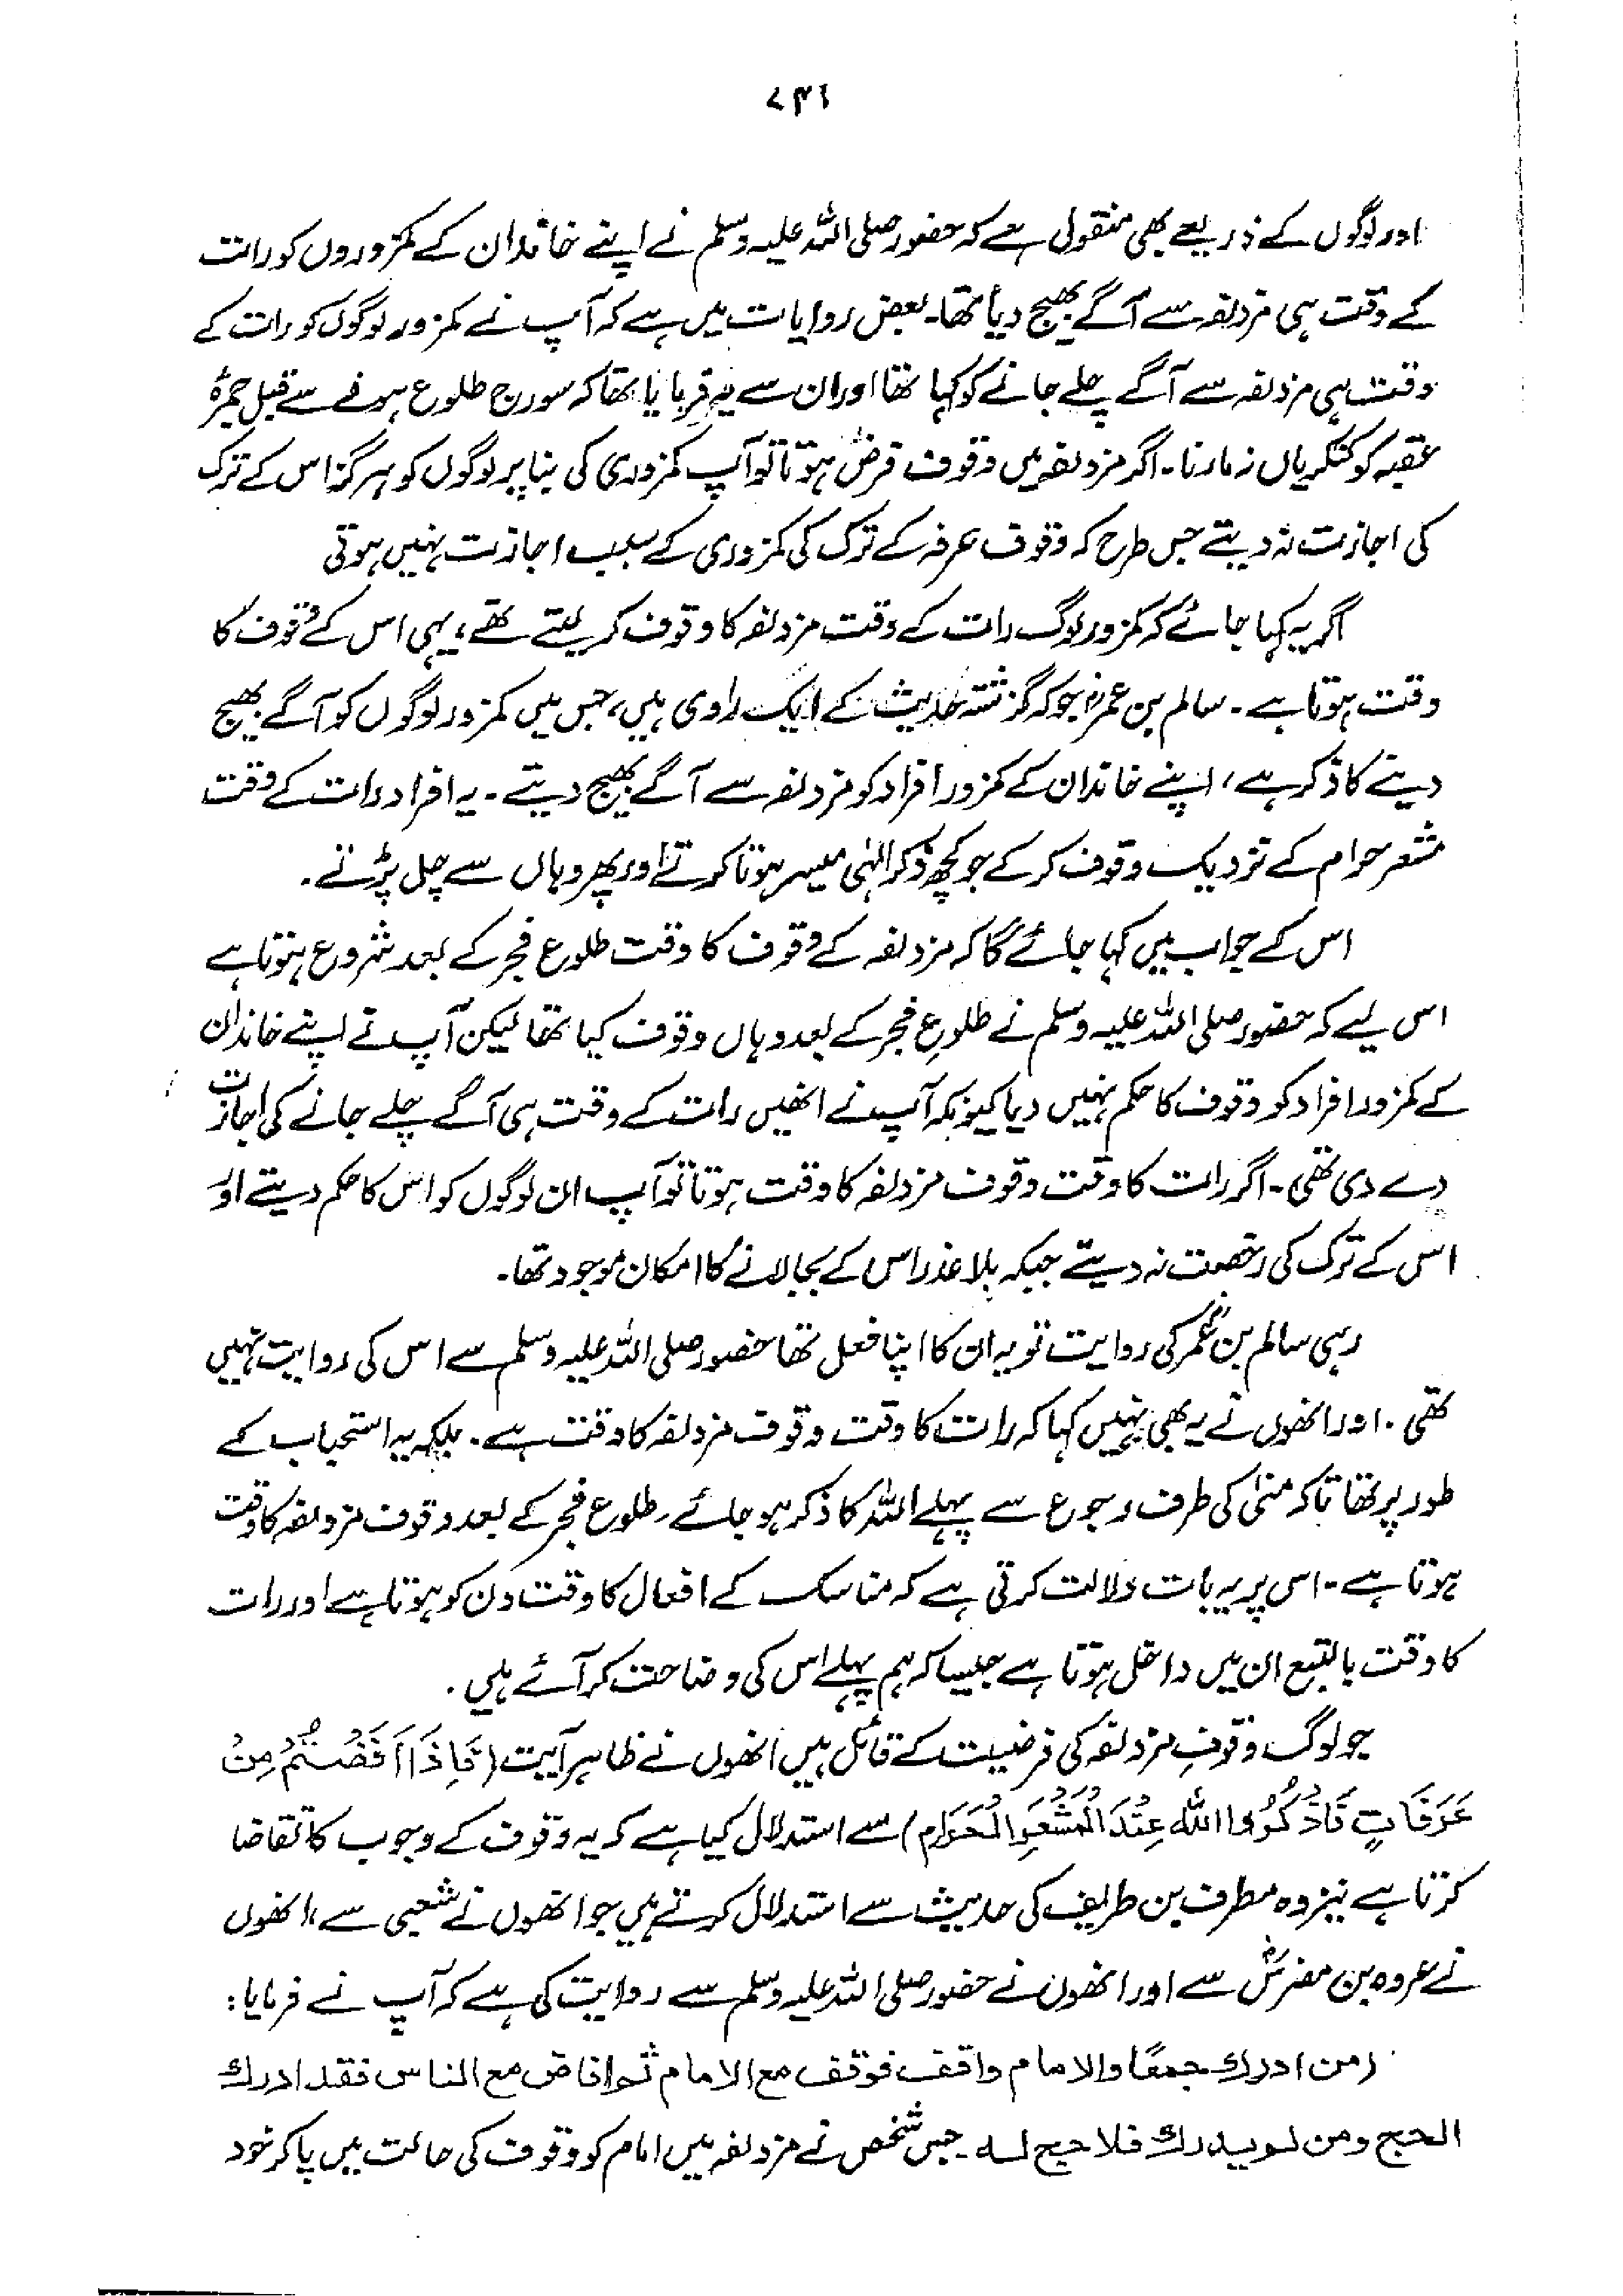 ۷۴۱
اور لوگوں کے ذریعے بھی منقول ہے کہ حضور صلی اللہ علیہ وسلم نے اپنے خاندان کے کمزوروں کو رات
کے وقت ہی مزدلفہ سے آگے بھیج دیا تھا۔ بعض روایات میں ہے کہ آپ نے کمزور لوگوں کو رات کے
وقت ہی مزدلفہ سے آگے چلے جانے کو کہا تھا اور ان سے یہ فرمایا تھا کہ سورج طلوع ہونے سے قبل جمرۂ
عقبہ کو کنکریاں نہ مارنا۔ اگر مزدلفہ میں وقوف فرض ہوتا تو آپ کمزوری کی بنا پر لوگوں کو ہرگز اس کے ترک
کی اجازت نہ دیتے جس طرح کہ وقوف عرفہ کے ترک کی کمزوری کے سبب اجازت نہیں ہوتی
اگر یہ کہا جائے کہ کمزور لوگ رات کے وقت مزدلفہ کا وقوف کر لیتے تھے، یہی اس کے وقوف کا
وقت ہوتا ہے۔ سالم بن عمرؓ جو کہ گزشتہ حدیث کے ایک راوی ہیں، جس میں کمزور لوگوں کو آگے بھیج
دینے کا ذکر ہے، اپنے خاندان کے کمزور افراد کو مزدلفہ سے آگے بھیج دیتے۔ یہ افراد رات کے وقت
مشعر حرام کے نزدیک وقوف کر کے جو کچھ ذکر الٰہی میسر ہوتا کرتے اور پھر وہاں سے چل پڑتے۔
اس کے جواب میں کہا جائے گا کہ مزدلفہ کے وقوف کا وقت طلوع فجر کے بعد شروع ہوتا ہے
اس لیے کہ حضور صلی اللہ علیہ وسلم نے طلوعِ فجر کے بعد وہاں وقوف کیا تھا لیکن آپ نے اپنے خاندان
کے کمزور افراد کو وقوف کا حکم نہیں دیا کیونکہ آپ نے انھیں رات کے وقت ہی آگے چلے جانے کی اجازت
دے دی تھی۔ اگر رات کا وقت وقوف مزدلفہ کا وقت ہوتا تو آپ ان لوگوں کو اس کا حکم دیتے اور
اس کے ترک کی رخصت نہ دیتے جبکہ بلا عذر اس کے بجا لانے کا امکان موجود تھا۔
رہی سالم بن عمرؓ کی روایت تو یہ ان کا اپنا فعل تھا حضور صلی اللہ علیہ وسلم سے اس کی روایت نہیں
تھی۔ اور انھوں نے یہ بھی نہیں کہا کہ رات کا وقت وقوف مزدلفہ کا وقت ہے۔ بلکہ یہ استحباب کے
طور پر تھا تاکہ منیٰ کی طرف رجوع سے پہلے اللہ کا ذکر ہو جائے۔ طلوع فجر کے بعد وقوف مزدلفہ کا وقت
ہوتا ہے۔ اس پر یہ بات دلالت کرتی ہے کہ مناسک کے افعال کا وقت دن کو ہوتا ہے اور رات
کا وقت بالتبع ان میں داخل ہوتا ہے جیسا کہ ہم پہلے اس کی وضاحت کر آئے ہیں۔
جو لوگ وقوفِ مزدلفہ کی فرضیت کے قائل ہیں انھوں نے ظاہر آیت (فَاِذَا اَفَضْتُمْ مِنْ
عَرَفَاتٍ فَاذْکُرُوا اللّٰہَ عِنْدَ الْمَشْعَرِ الْحَرَامِ) سے استدلال کیا ہے کہ یہ وقوف کے وجوب کا تقاضا
کرتا ہے نیز وہ مطرف بن طریف کی حدیث سے استدلال کرتے ہیں جو انھوں نے شعبی سے، انھوں
نے عروہ بن مضرسؓ سے اور انھوں نے حضور صلی اللہ علیہ وسلم سے روایت کی ہے کہ آپ نے فرمایا:
(من ادرك جمعًا والامام واقف فوقف مع الامام ثم افاض مع الناس فقد ادرك
الحج ومن لم یدرك فلا حج له جس شخص نے مزدلفہ میں امام کو وقوف کی حالت میں پا کر خود